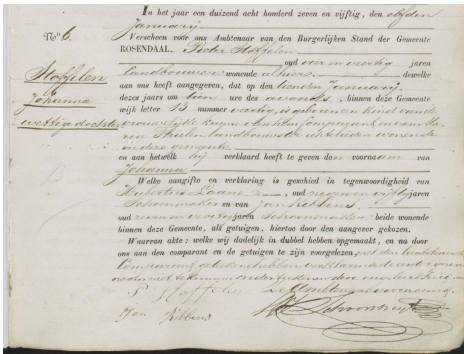 In het jaar een duizend acht honderd zeven en vijftig, den elfden
Januarij
N° 6.
Verscheen voor ons Ambtenaar van den Burgerlijken Stand der Gemeente
ROSENDAAL, Pieter Stoffelen
oud een en veertig jaren
Stoffelen
landbouwer wonende alhier dewelke
Johanna
aan ons heeft aangegeven, dat op den tienden Januarij
wettige dochter
dezes jaars om tien ure des avonds, binnen deze Gemeente
wijk letter B nummer veertig, is geboren een kind van de
vrouwelijke kunne,
landbouwster wonende
in deze gemeente
en aan hetwelk hij verklaard heeft te geven den voornaam van
Johanna
Welke aangifte en verklaring is geschied in tegenwoordigheid van
Huibertus Laane, oud negen en vijftig jaren
Schoenmaker en van Jan Kebbens
oud zeven en veertig jaren Schoenmaker beide wonende
binnen deze Gemeente, als getuigen, hiertoe door den aangever gekozen.
Waarvan akte: welke wij dadelijk in dubbel hebben opgemaakt, en na door
ons aan den comparant en de getuigen te zijn voorgelezen,
Comparant
P Stoffelen
Jan Kebbens